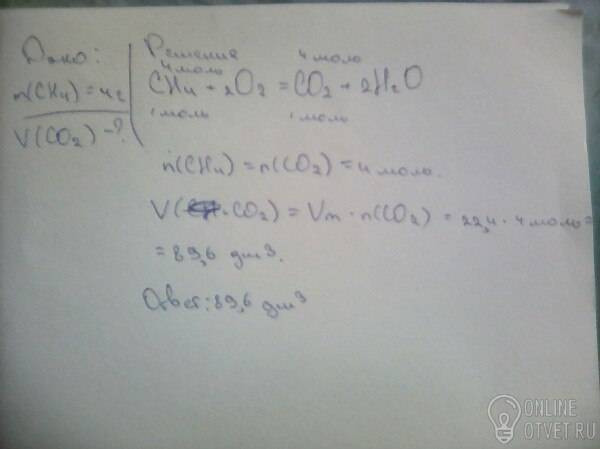 Дано:
n(CH4) = 4 г
V(CO2) - ?
Решение
4 моль 4 моль
CH4 + 2O2 = CO2 + 2H2O
1 моль 1 моль
n(CH4) = n(CO2) = 4 моль.
V(CO2) = Vm · n(CO2) = 22,4 · 4 моль =
= 89,6 дм3.
Ответ: 89,6 дм3
ONLINE
OTVET.RU